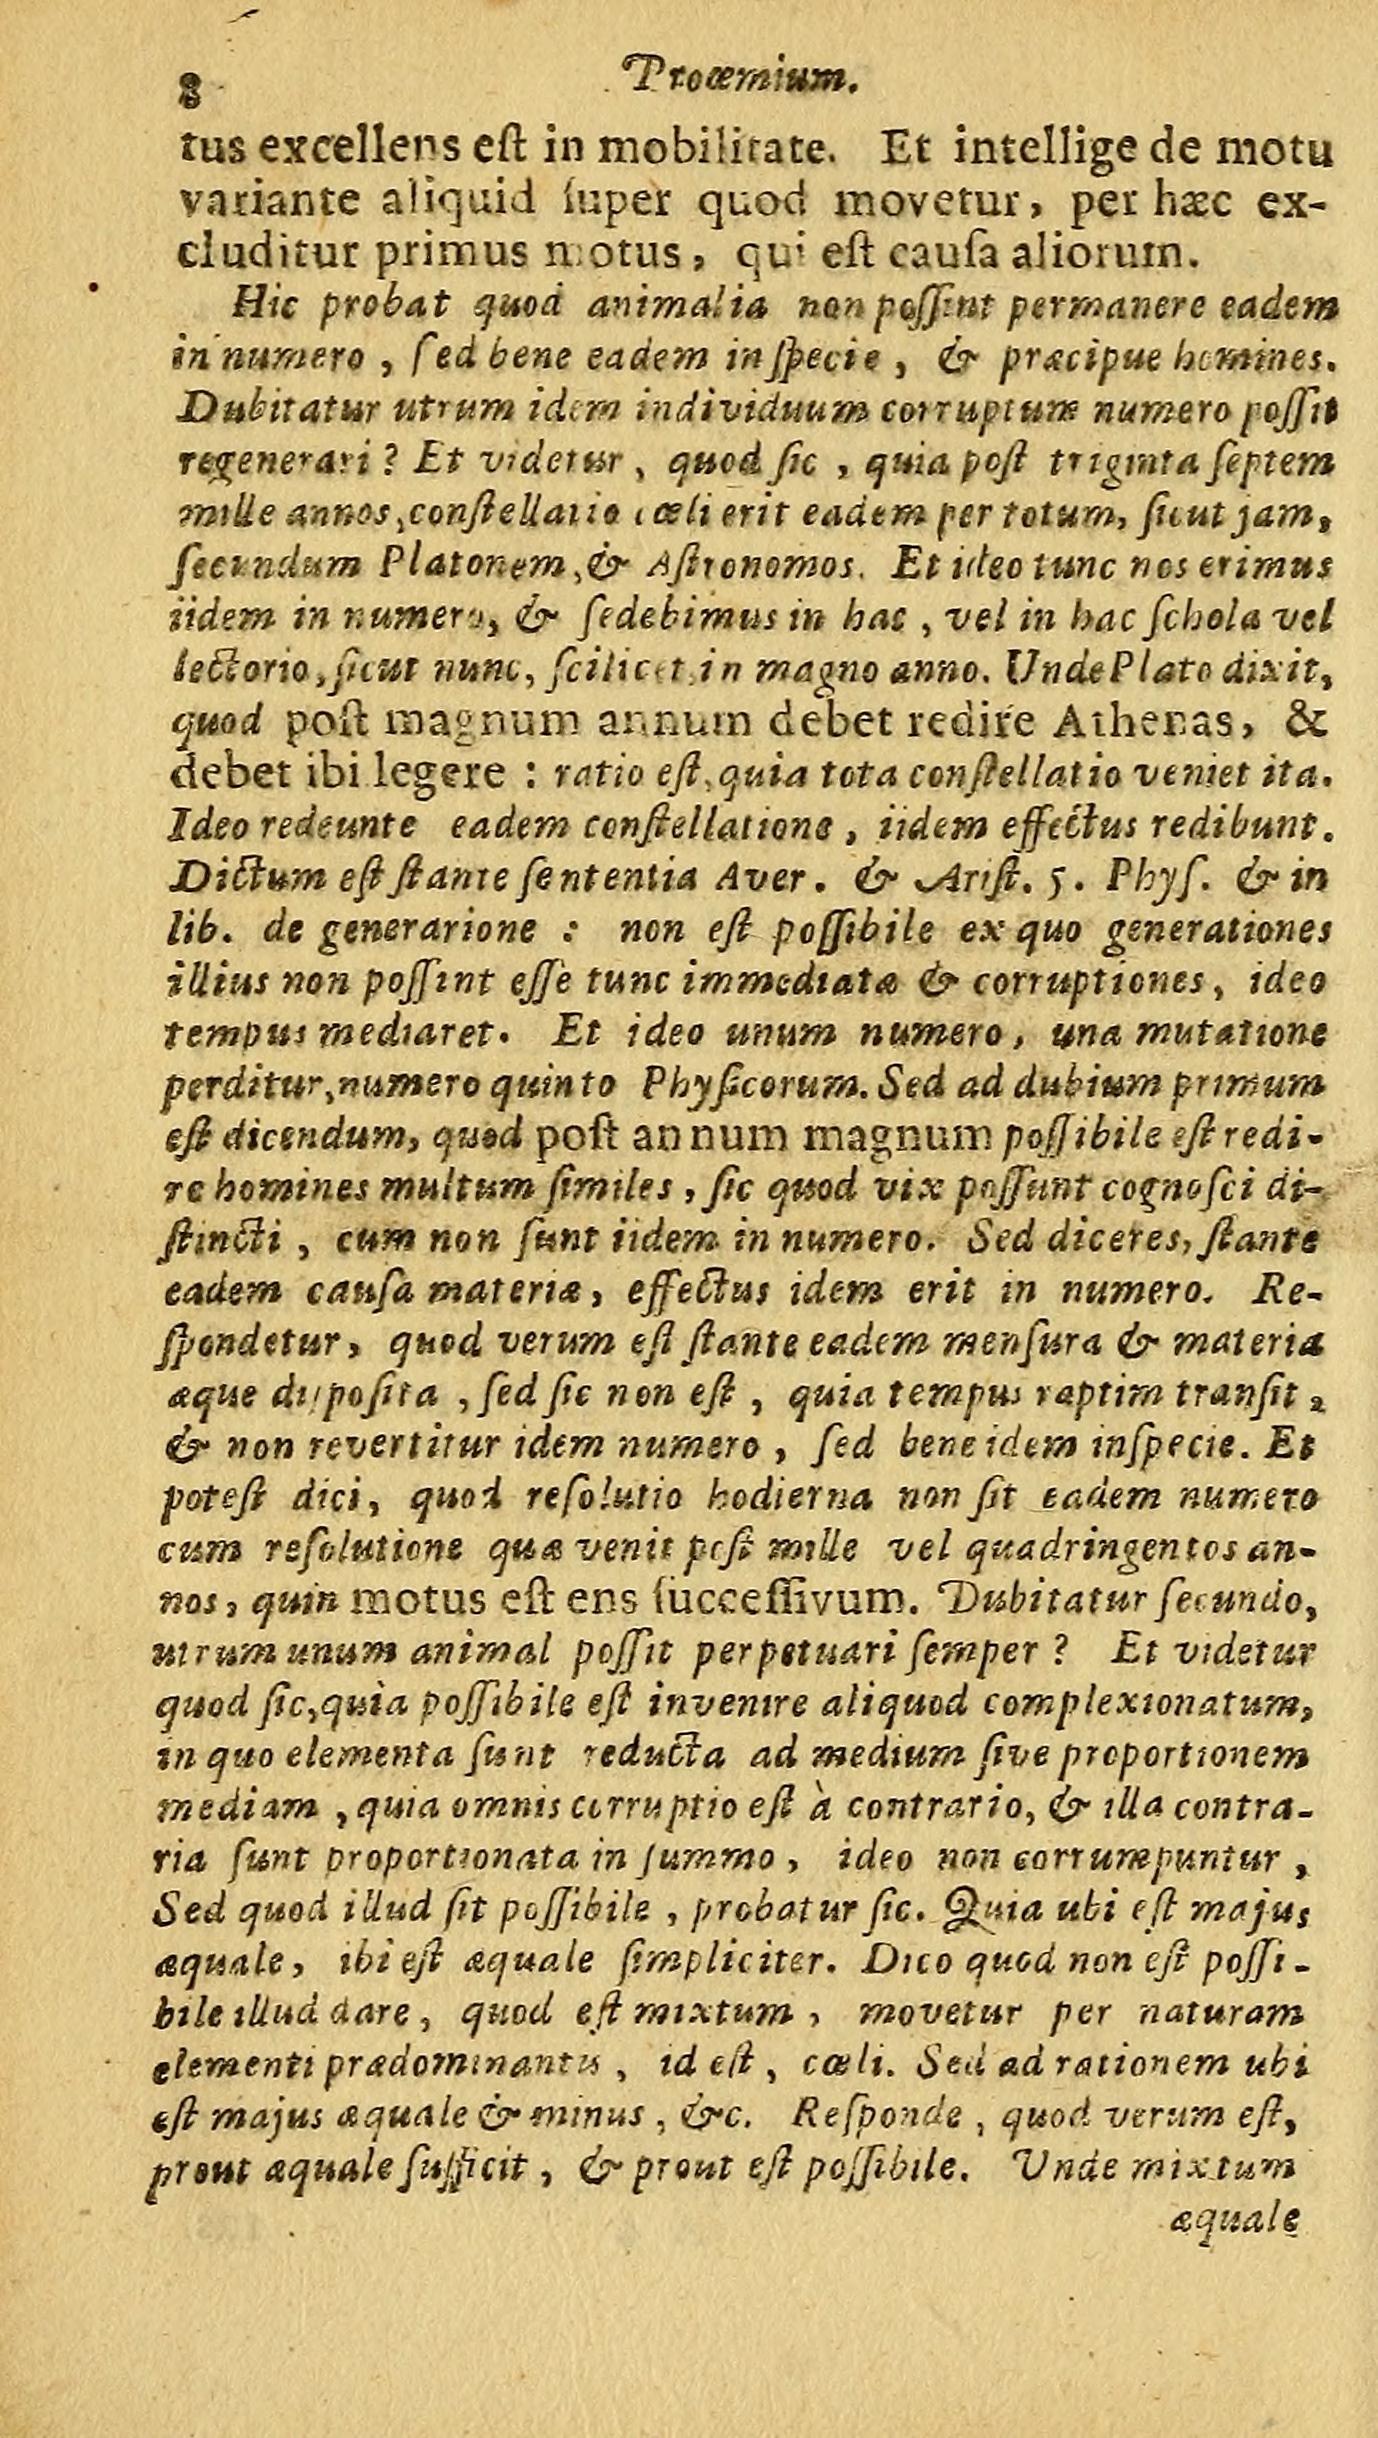 8 Proœmium.
tus excellens eſt in mobilitate. Et intellige de motu
variante aliquid ſuper quod movetur, per hæc ex-
cluditur primus motus, qui eſt cauſa aliorum.
Hic probat quod animalia non poſſint permanere eadem
in numero, ſed bene eadem in ſpecie, & præcipue homines.
Dubitatur utrum idem individuum corruptum numero poſſit
regenerari? Et videtur, quod ſic, quia poſt triginta ſeptem
mille annos, conſtellatio cœli erit eadem per totum, ſicut jam,
ſecundum Platonem, & Aſtronomos. Et ideo tunc nos erimus
iidem in numero, & ſedebimus in hac, vel in hac ſchola vel
lectorio, ſicut nunc, ſcilicet in magno anno. Unde Plato dixit,
quod poſt magnum annum debet redire Athenas, &
debet ibi legere: ratio eſt, quia tota conſtellatio veniet ita.
Ideo redeunte eadem conſtellatione, iidem effectus redibunt.
Dictum eſt ſtante ſententia Aver. & Ariſt. 5. Phyſ. & in
lib. de generarione: non eſt poſſibile ex quo generationes
illius non poſſint eſſe tunc immediatæ & corruptiones, ideo
tempus mediaret. Et ideo unum numero, una mutatione
perditur, numero quinto Phyſicorum. Sed ad dubium primum
eſt dicendum, quod poſt annum magnum poſſibile eſt redi-
re homines multum ſimiles, ſic quod vix poſſunt cognoſci di-
ſtincti, cum non ſunt iidem in numero. Sed diceres, ſtante
eadem cauſa materiæ, effectus idem erit in numero. Re-
ſpondetur, quod verum eſt ſtante eadem menſura & materia
æque diſpoſita, ſed ſic non eſt, quia tempus raptim tranſit,
& non revertitur idem numero, ſed bene idem inſpecie. Et
poteſt dici, quod reſolutio hodierna non ſit eadem numero
cum reſolutione quæ venit poſt mille vel quadringentos an-
nos, quin motus eſt ens ſucceſſivum. Dubitatur ſecundo,
utrum unum animal poſſit perpetuari ſemper? Et videtur
quod ſic, quia poſſibile eſt invenire aliquod complexionatum,
in quo elementa ſunt reducta ad medium ſive proportionem
mediam, quia omnis corruptio eſt à contrario, & illa contra-
ria ſunt proportionata in ſummo, ideo non corrumpuntur,
Sed quod illud ſit poſſibile, probatur ſic. Quia ubi eſt majus
æquale, ibi eſt æquale ſimpliciter. Dico quod non eſt poſſi-
bile illud dare, quod eſt mixtum, movetur per naturam
elementi prædominantis, id eſt, cœli. Sed ad rationem ubi
eſt majus æquale & minus, &c. Reſponde, quod verum eſt,
prout æquale ſufficit, & prout eſt poſſibile. Unde mixtum
æquale